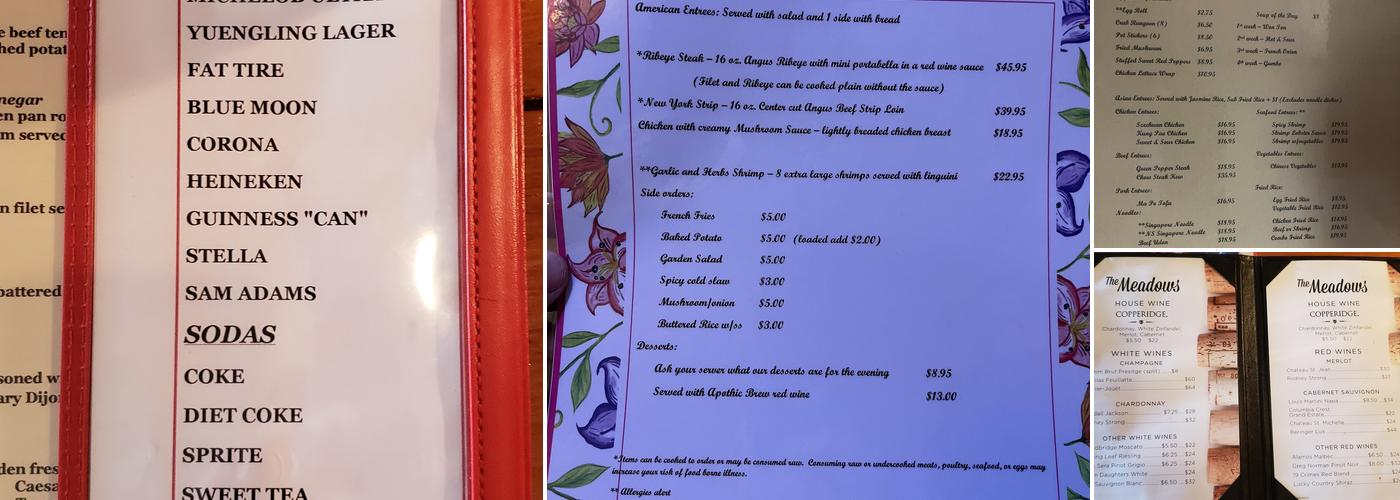 e beef ten
hed potat
negar
en pan ro
m served
n filet se
battered
soned w
ary Dijo
den fres
Caesa
YUENGLING LAGER
FAT TIRE
BLUE MOON
CORONA
HEINEKEN
GUINNESS "CAN"
STELLA
SAM ADAMS
SODAS
COKE
DIET COKE
SPRITE
SWEET TEA
American Entrees: Served with salad and 1 side with bread
*Ribeye Steak – 16 oz. Angus Ribeye with mini portabella in a red wine sauce $45.95
(Filet and Ribeye can be cooked plain without the sauce)
*New York Strip – 16 oz. Center cut Angus Beef Strip Loin $39.95
Chicken with creamy Mushroom Sauce – lightly breaded chicken breast $18.95
**Garlic and Herbs Shrimp – 8 extra large shrimps served with linguini $22.95
Side orders:
French Fries $5.00
Baked Potato $5.00 (loaded add $2.00)
Garden Salad $5.00
Spicy cold slaw $3.00
Mushroom/onion $5.00
Buttered Rice w/ss $3.00
Desserts:
Ask your server what our desserts are for the evening $8.95
Served with Apothic Brew red wine $13.00
*Items can be cooked to order or may be consumed raw. Consuming raw or undercooked meats, poultry, seafood, or eggs may
increase your risk of food borne illness.
** Allergies alert
**Egg Roll $2.75
Crab Rangoon (8) $6.50
Pot Stickers (6) $8.50
Fried Mushroom $6.95
Stuffed Sweet Red Peppers $8.95
Chicken Lettuce Wrap $10.95
Soup of the Day $3
1st week – Won Ton
2nd week – Hot & Sour
3rd week – French Onion
4th week – Gumbo
Asian Entrees: Served with Jasmine Rice, Sub Fried Rice + $1 (Excludes noodle dishes)
Chicken Entrees:
Szechuan Chicken $16.95
Kung Pao Chicken $16.95
Sweet & Sour Chicken $16.95
Beef Entrees:
Green Pepper Steak $18.95
Chow Steak Kew $35.95
Pork Entrees:
Ma Po Tofu $16.95
Noodles:
**Singapore Noodle $18.95
**NS Singapore Noodle $18.95
Beef Udon $18.95
Seafood Entrees: **
Spicy Shrimp $19.95
Shrimp Lobster Sauce $19.95
Shrimp w/vegetables $19.95
Vegetables Entrees:
Chinese Vegetables
Fried Rice:
Egg Fried Rice
Vegetable Fried Rice
Chicken Fried Rice
Beef or Shrimp
Combo Fried Rice
The Meadows
HOUSE WINE
COPPERIDGE,
Chardonnay, White Zinfandel,
Merlot, Cabernet
$5.50 $22
WHITE WINES
CHAMPAGNE
mm Brut Prestige (split) ....$8
olas Feuillatte $60
rrier-Jouët $64
CHARDONNAY
dall Jackson $7.25 ... $28
ney Strong $32
OTHER WHITE WINES
odbridge Moscato $5.50 ... $22
ng Leaf Riesling $6.25 ... $24
Sera Pinot Grigio $6.25 ... $24
n Daughters White $24
Sauvignon Blanc $6.50 ... $32
The Meadows
HOUSE WINE
COPPERIDGE,
Chardonnay, White Zinfandel,
Merlot, Cabernet
$5.50 $22
RED WINES
MERLOT
Chateau St. Jean $30
Rodney Strong
CABERNET SAUVIGNON
Louis Martini Napa $8.50 ... $34
Columbia Crest
Grand Estate
Chateau St. Michelle $24
Beringer Lux $44
OTHER RED WINES
Alamos Malbec $6.50
Greg Norman Pinot Noir $8.00
19 Crimes Red Blend
Lucky Country Shiraz